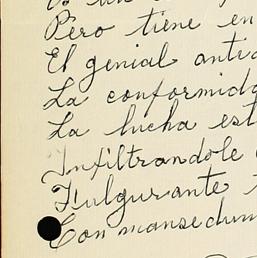 Pero tiene en
El genial anti
La conformida
La lucha est
Infiltrandole
Fulgurante
Con mansedum